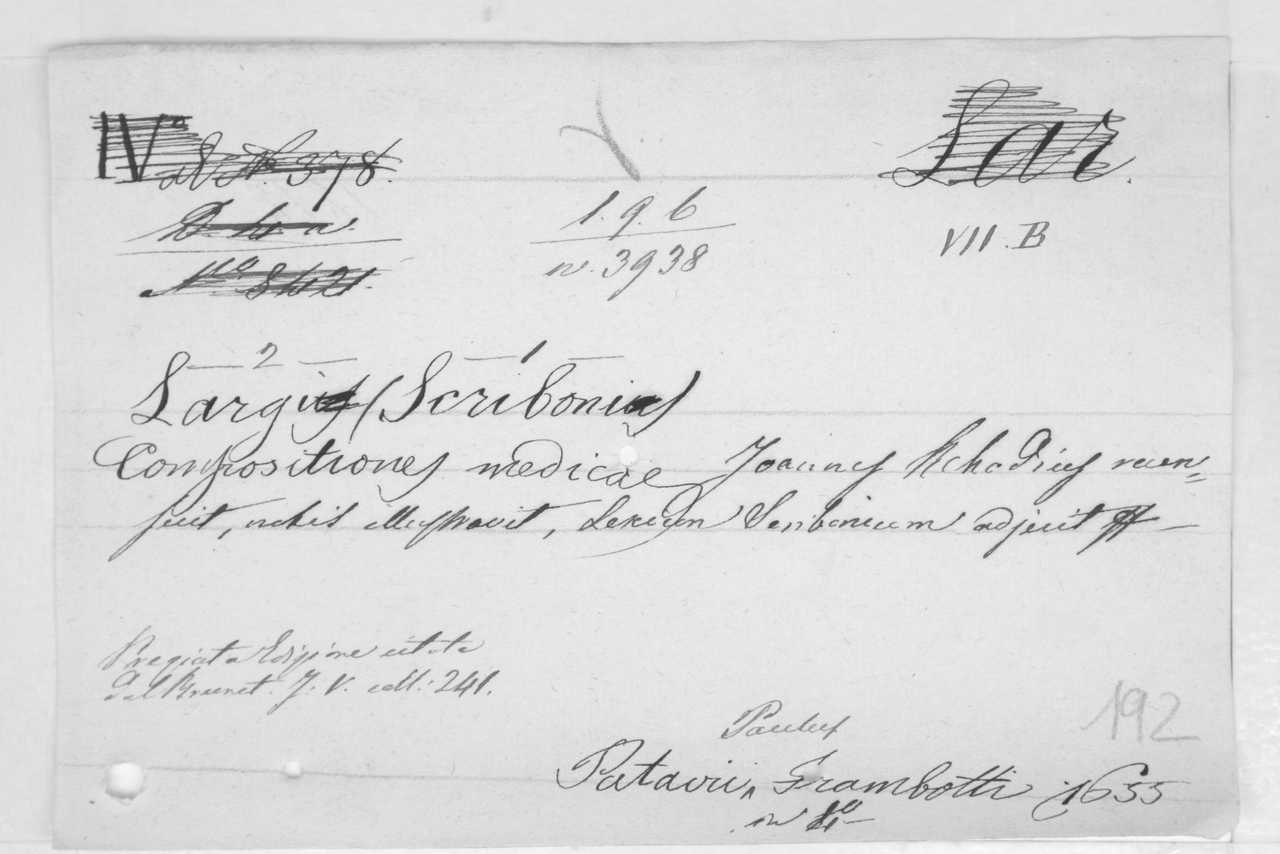 IV.a
N. 378.
Lar.
1. 9. 6
n. 3938
VII. B
No 8421.
— 2 — — 1 —
Largius (Scribonius)
Compositiones medicae Joannes Rhodius recen=
suit, notis illustravit, Lexicon Scribonium adjecit
Pregiata Edizione citata
dal Brunet. T. V. coll. 241.
192
Paulus
Patavii, Frambotti 1655
in 4o